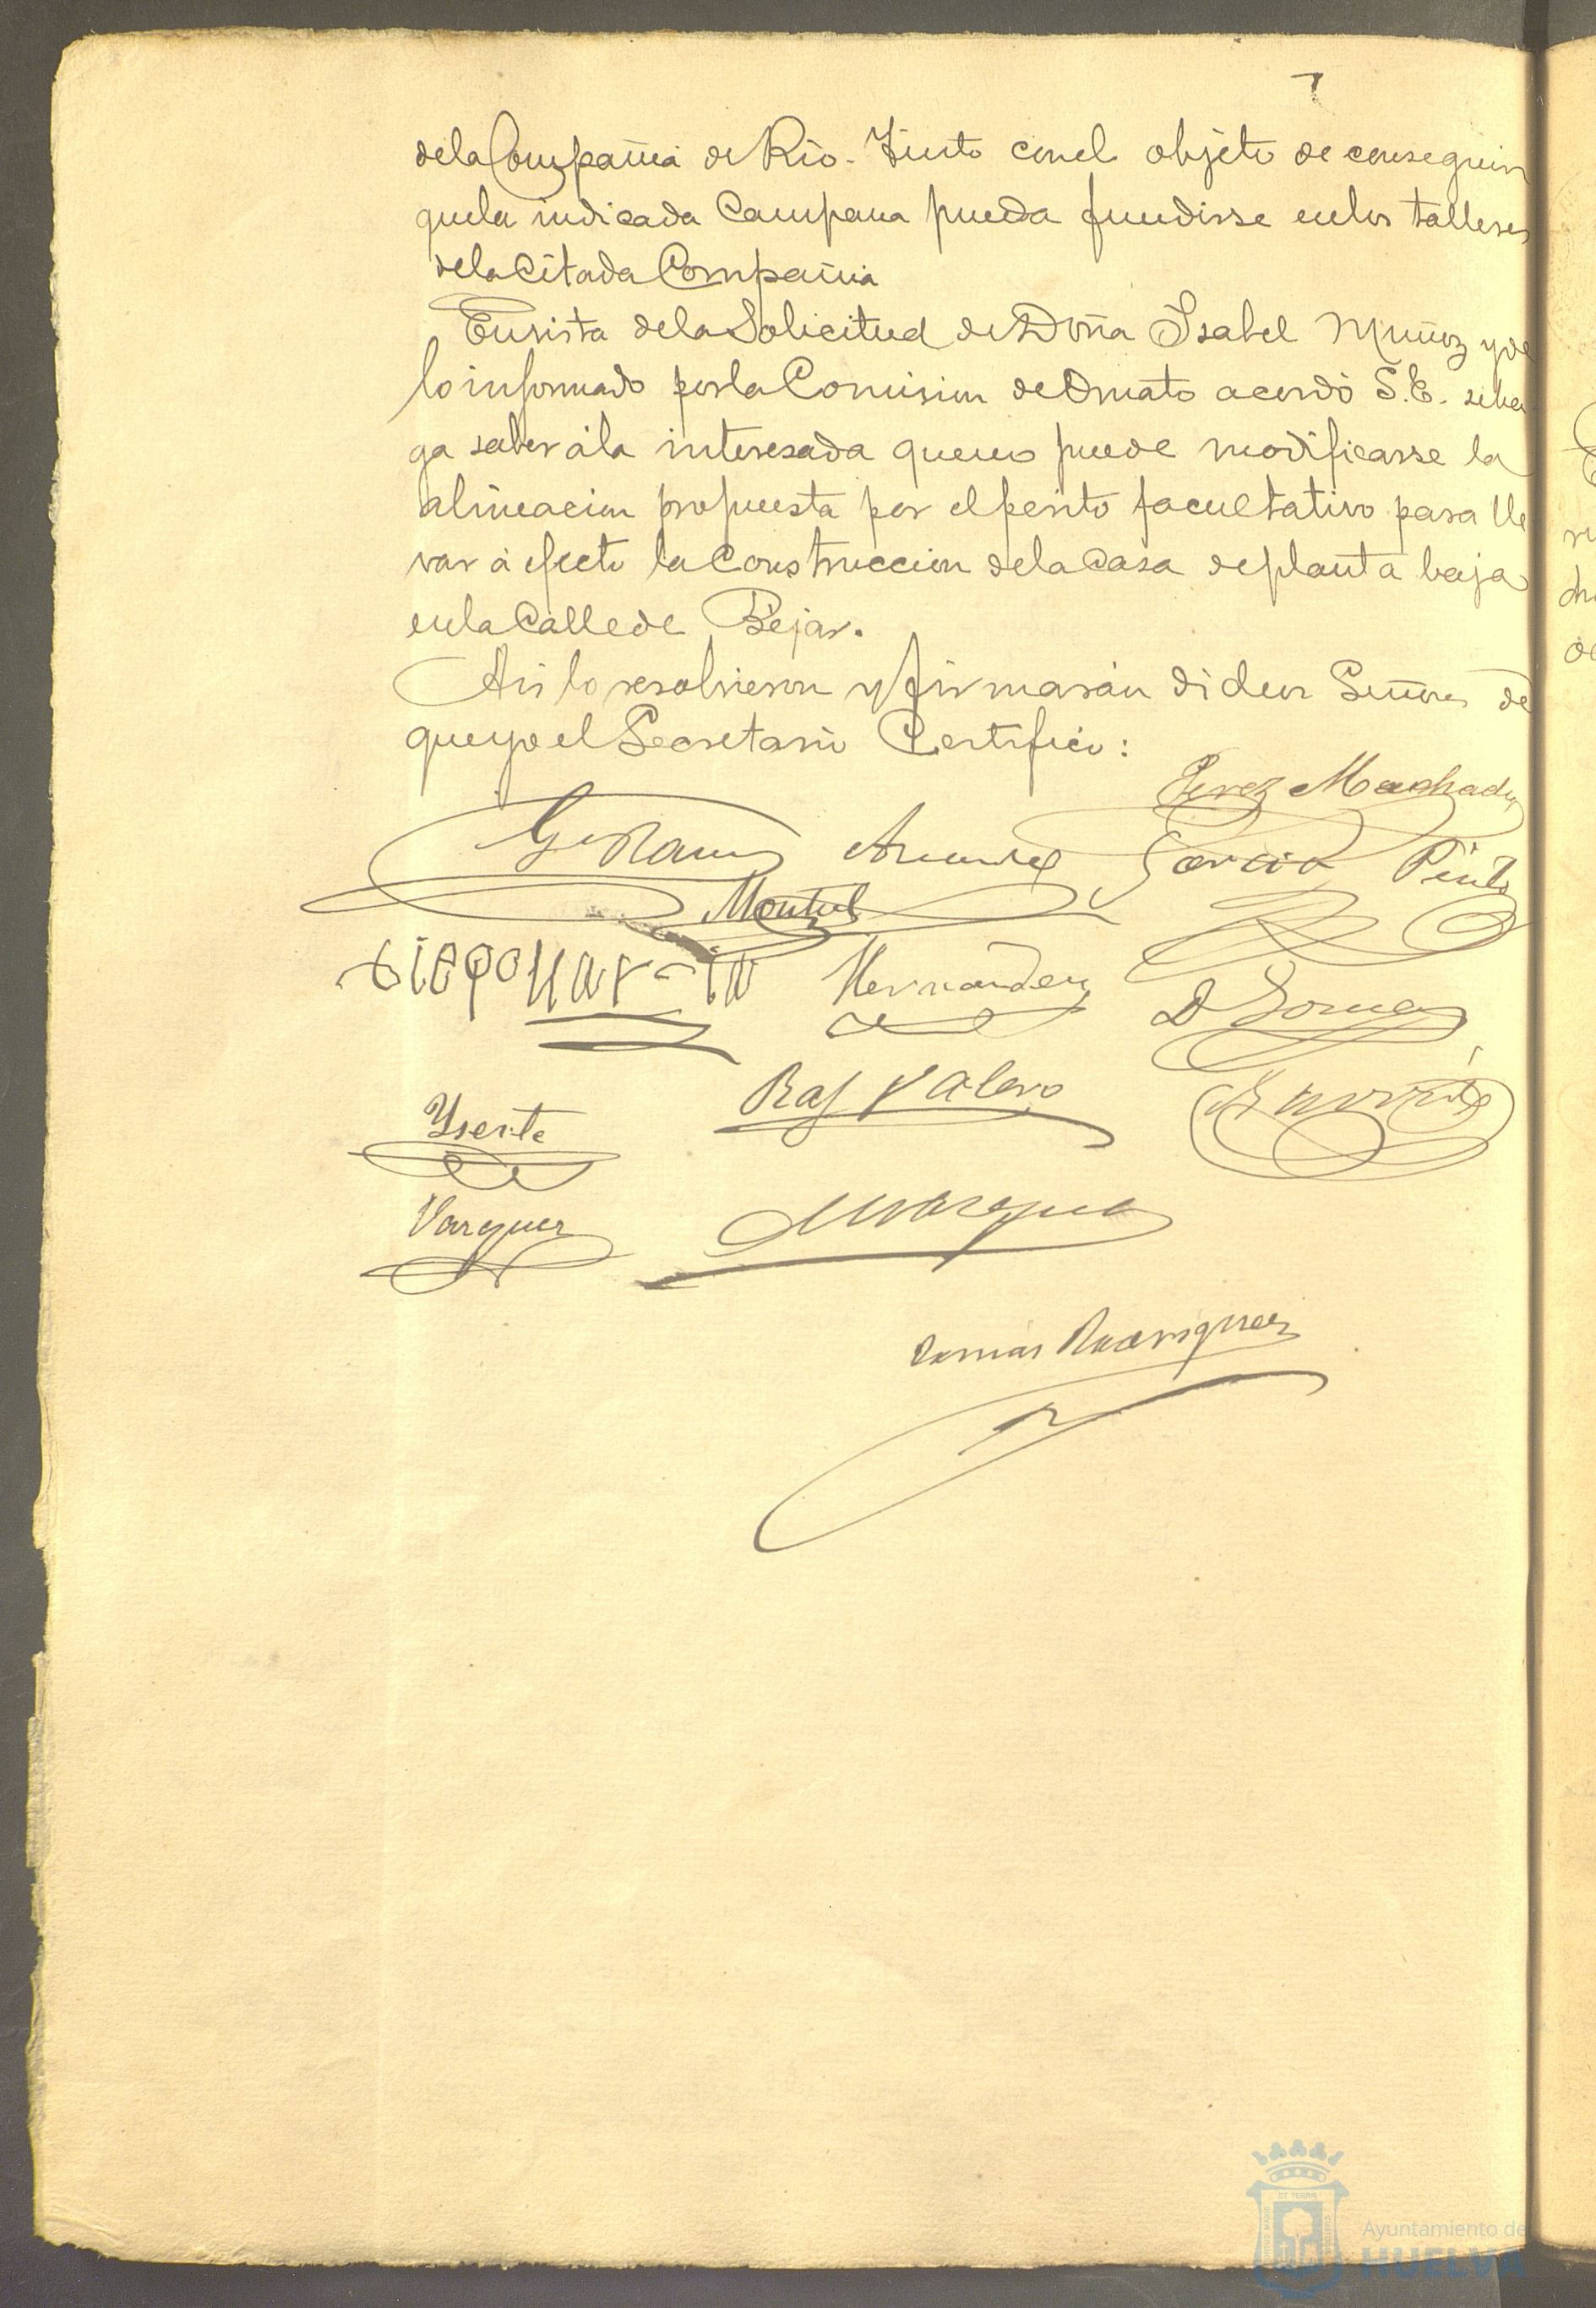 dela Compañia de Rio-Tinto conel objeto de conseguir
quela indicada Campana pueda fundirse enlos talleres
dela Citada Compañia
Envista dela Solicitud de Doña Isabel Muñoz y de
lo informado porla Comision de Ornato acordó S.E. seha
ga saber ála interesada queno puede modificarse la
alineacion propuesta por el perito facultativo para lle
var á efecto la Construccion dela Casa de planta baja
enla Calle de Bejar.
Asi lo resolvieron y firmarán dichos Señores de
queyo el Secretario Certifico:
Perez Machado
Garcia Pinto
Montiel
Hernandez
D Gomez
Raf Valero
Ysente
Vazquez
Tomas Rodriguez
Ayuntamiento de
HUELVA